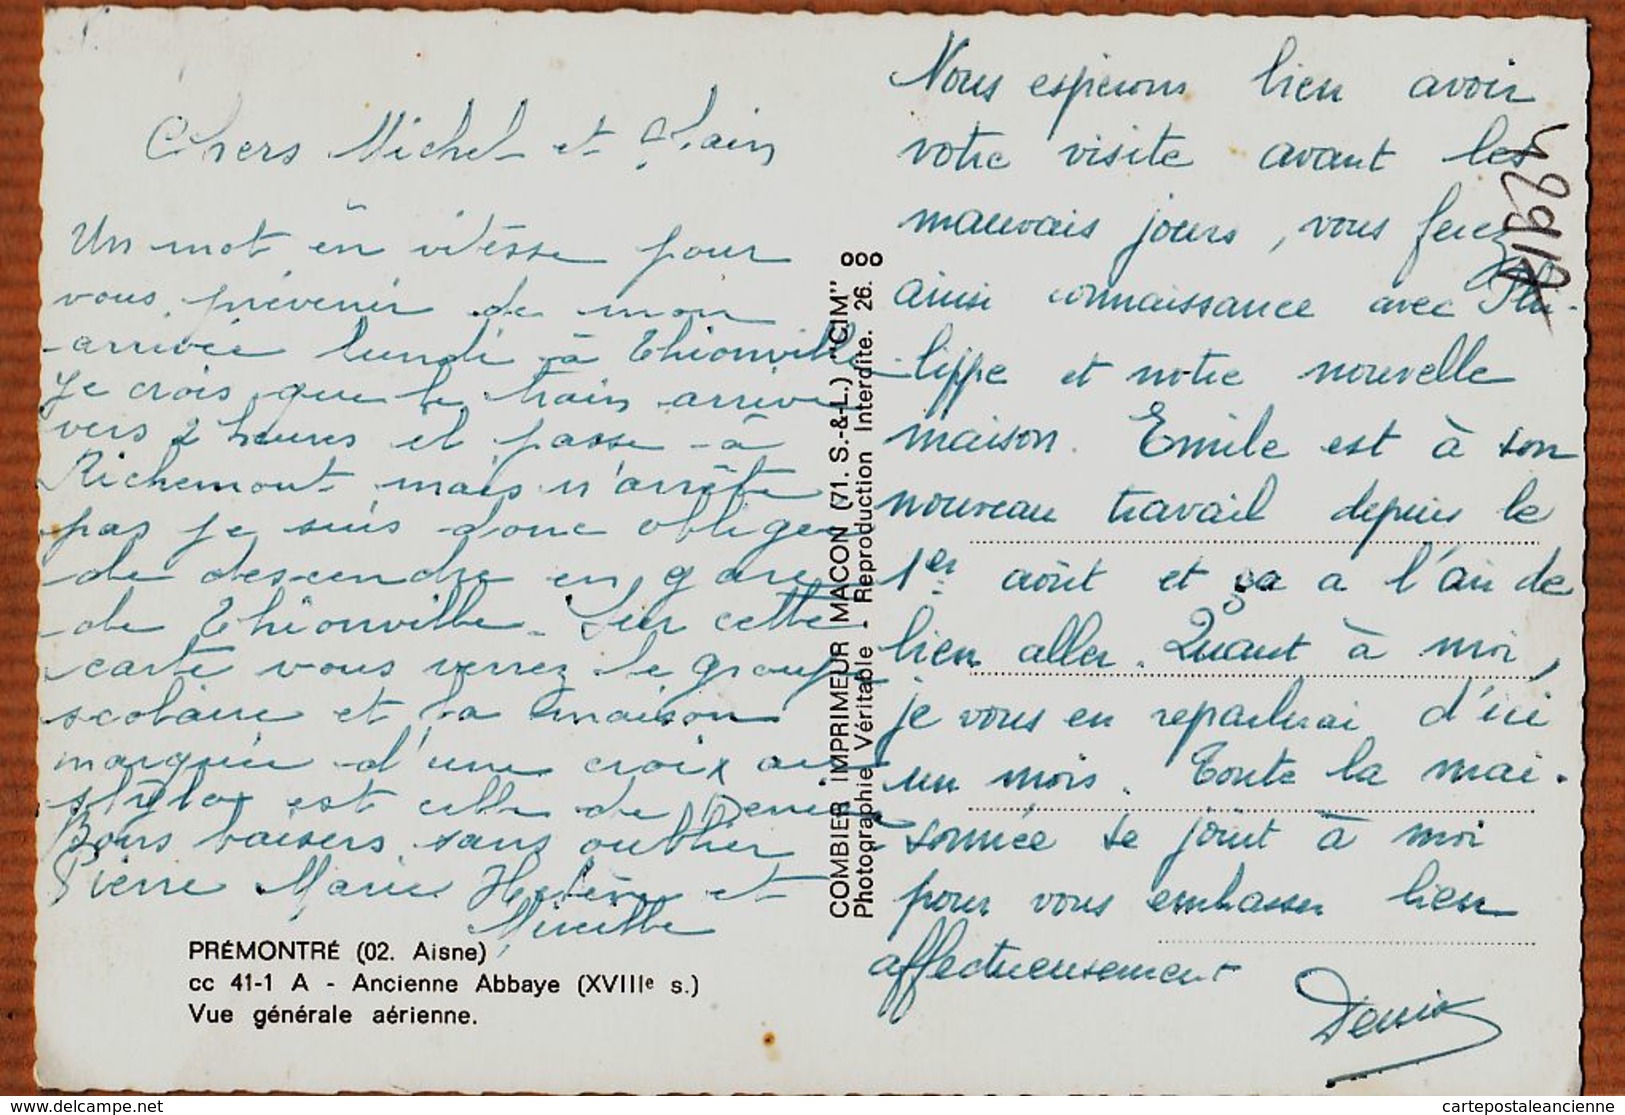 Chers Michel et Alain
Un mot en vitesse pour
vous prévenir de mon
arrivée lundi à Thionville
Je crois que le train arrive
vers 2 heures et passe à
Richemont mais n'arrête
pas je suis donc obligée
de descendre en gare
de Thionville. Sur cette
carte vous verrez le groupe
scolaire et la maison
marquée d'une croix au
stylo est celle de Denise
Bons baisers sans oublier
Pierre Marie Hélène et
Mireille
PRÉMONTRÉ (02. Aisne)
cc 41-1 A - Ancienne Abbaye (XVIIIe s.)
Vue générale aérienne.
COMBIER IMPRIMEUR MACON (71. S.-&-L.) "CIM" ooo
Photographie Véritable - Reproduction Interdite. 26.
Nous espérons bien avoir
votre visite avant les
mauvais jours, vous ferez
ainsi connaissance avec Phi-
lippe et notre nouvelle
maison. Emile est à son
nouveau travail depuis le
1er août et ça a l'air de
bien aller. Quant à moi,
je vous en reparlerai d'ici
un mois. Toute la mai-
sonnée se joint à moi
pour vous embrasser bien
affectueusement
Denise
cartepostaleancienne